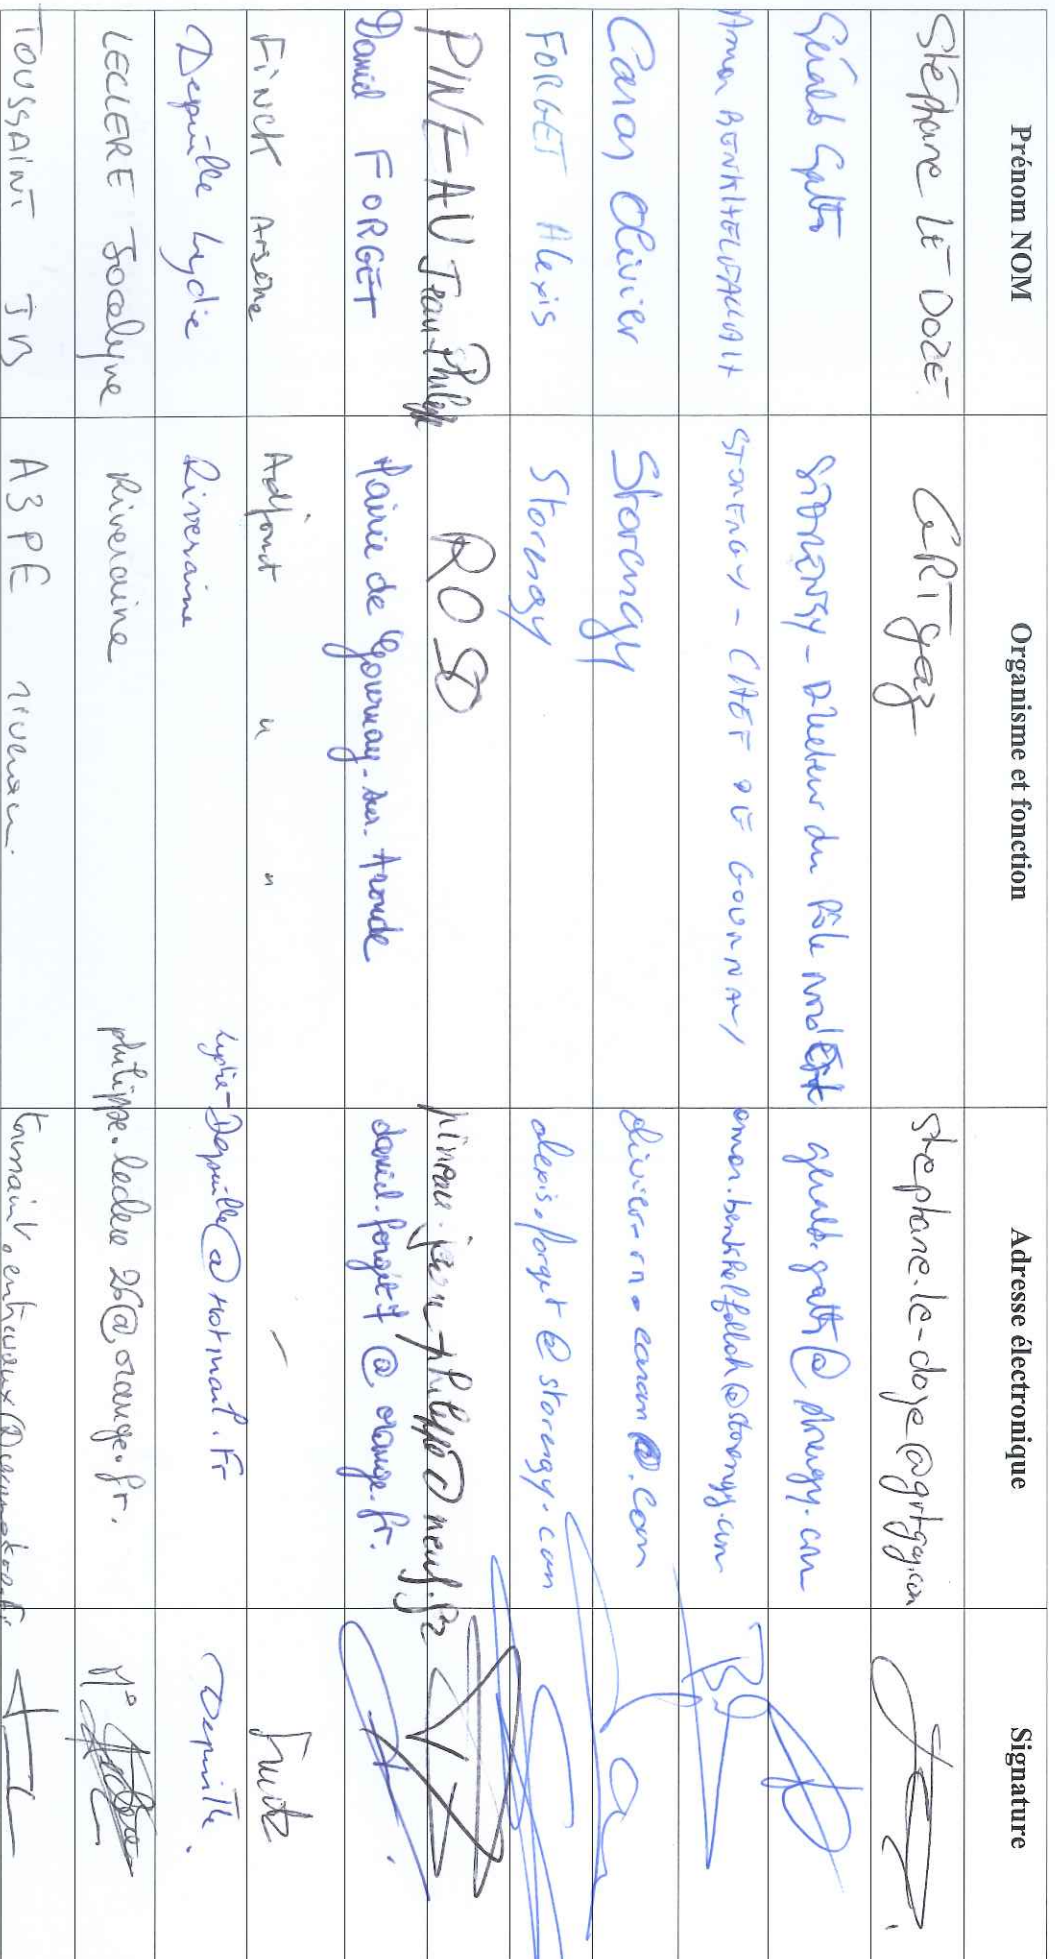 Prénom NOM Organisme et fonction Adresse électronique Signature
Stéphane LE DOZE GRTgaz stephane.le-doze@grtgaz.com
Gérald Storengy - Directeur du Pôle Nord Est
STORENGY - CHEF DE GOURNAY omar.benkhelfallah@storengy.com
Caron Olivier Storengy
FORGET Alexis Storengy alexis.forget@storengy.com
PINEAU Jean-Philippe ROSO pineau.jean-philippe@neuf.fr
Daniel FORGET Mairie de Gournay-sur-Aronde daniel.forget@orange.fr.
FINCK Arsène Adjoint " " -
Depuille Lydie Riveraine Lydie-Depuille@Hotmail.Fr Depuille.
LECLERE Jocelyne Riveraine philippe.leclere26@orange.fr.
TOUSSAINT JM A3PE riverain.